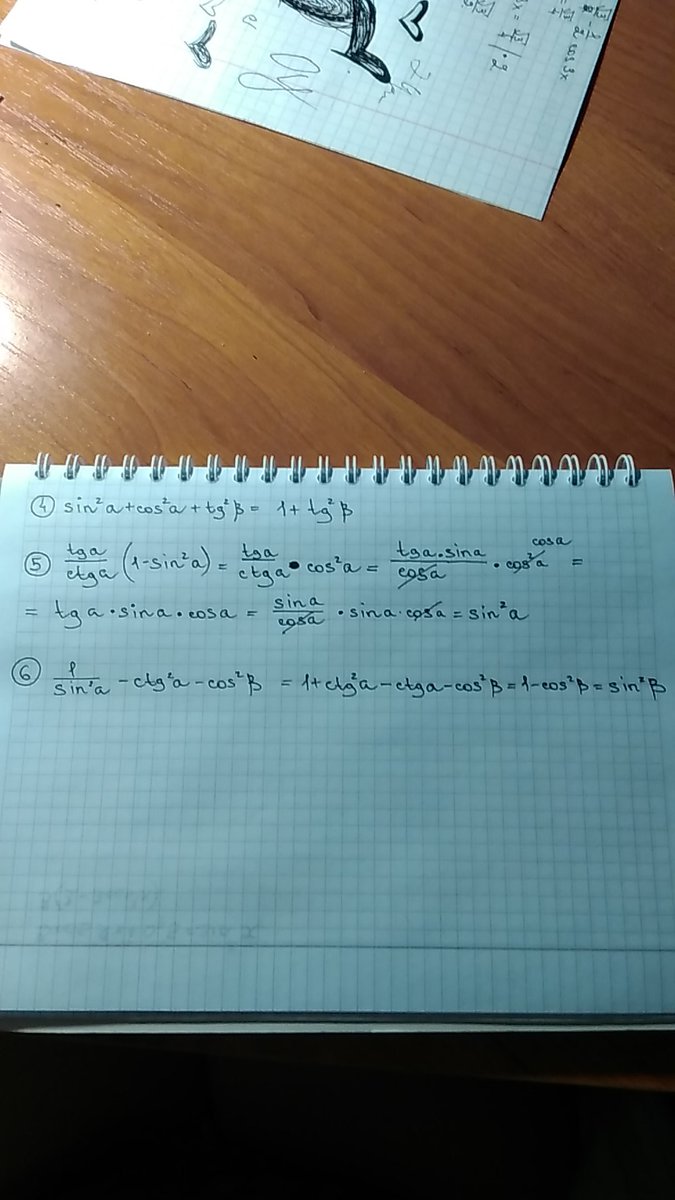 ④ sin²a+cos²a+tg²β= 1+tg²β
⑤ tga/ctga (1-sin²a)= tga/ctga • cos²a = tga•sina/cosa • cos²a cosa =
= tga•sina•cosa = sina/cosa •sina•cosa = sin²a
⑥ 1/sin²a -ctg²a-cos²β = 1+ctg²a-ctga-cos²β=1-cos²β=sin²β